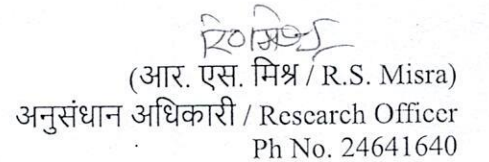 (आर. एस. मिश्र / R.S. Misra)
अनुसंधान अधिकारी / Research Officer
Ph No. 24641640